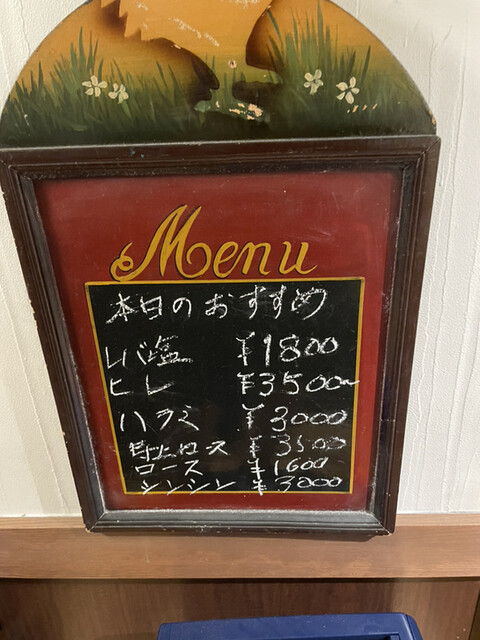 Menu
本日のおすすめ
レバ塩 ¥1800
ヒレ ¥3500~
ハラミ ¥3000
特上ロース ¥3500
ロース ¥1600
シンシン ¥3000